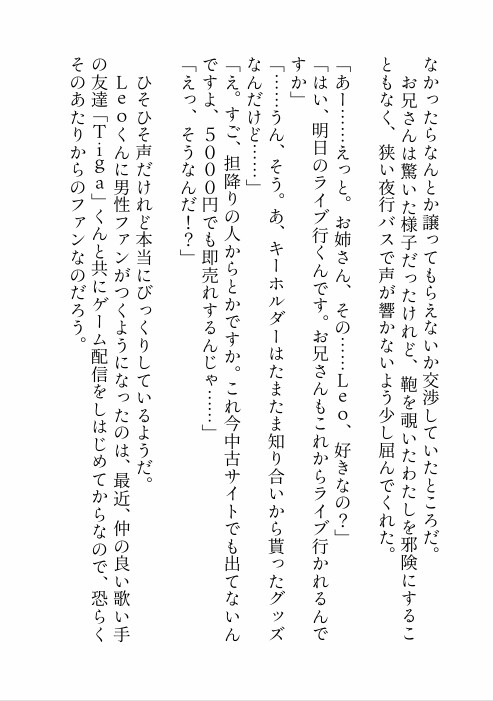 なかったらなんとか譲ってもらえないか交渉していたところだ。
　お兄さんは驚いた様子だったけれど、鞄を覗いたわたしを邪険にするこ
ともなく、狭い夜行バスで声が響かないよう少し屈んでくれた。
「あー……えっと。お姉さん、その……Ｌｅｏ、好きなの？」
「はい、明日のライブ行くんです。お兄さんもこれからライブ行かれるんで
すか」
「……うん、そう。あ、キーホルダーはたまたま知り合いから貰ったグッズ
なんだけど……」
「え。すご、担降りの人からとかですか。これ今中古サイトでも出てないん
ですよ、５０００円でも即売れするんじゃ……」
「えっ、そうなんだ！？」
　ひそひそ声だけれど本当にびっくりしているようだ。
　Ｌｅｏくんに男性ファンがつくようになったのは、最近、仲の良い歌い手
の友達「Ｔ.ｉｇａ」くんと共にゲーム配信をしはじめてからなので、恐らく
そのあたりからのファンなのだろう。